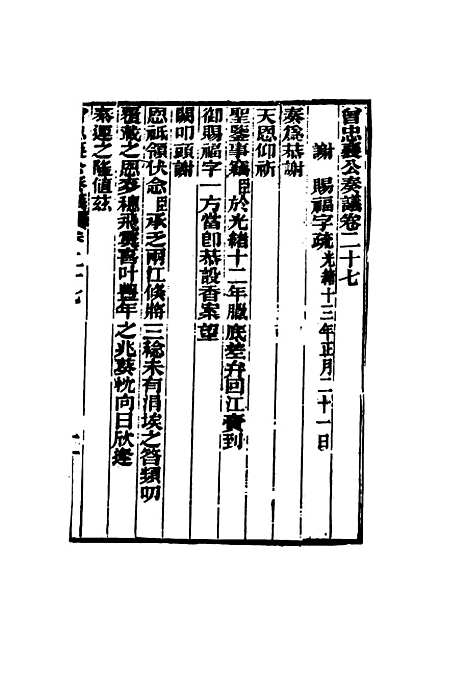 曾忠襄公奏議卷二十七
謝 賜福字疏光緒十三年正月二十一日
奏爲恭謝
天恩仰祈
聖鑒事竊臣於光緒十二年臘底差弁回江賫到
御賜福字一方當卽恭設香案望
闕叩頭謝
恩祗領伏念臣承乏兩江倏將三稔未有涓埃之答頻叨
覆載之恩麥穗飛雲喜叶豐年之兆葵忱向日欣逢
泰運之隆値玆